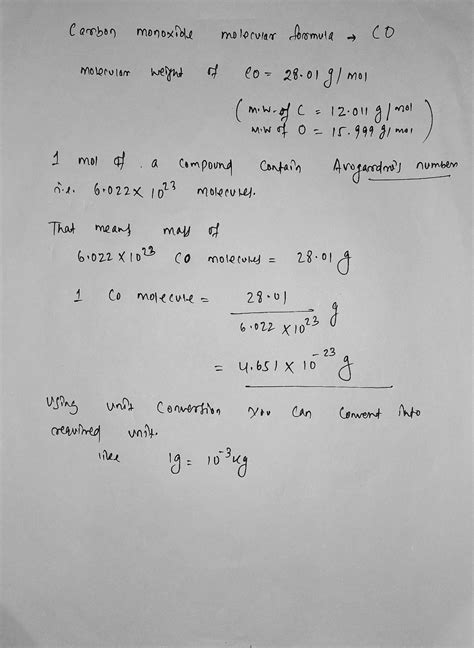 Carbon monoxide molecular formula → CO
molecular weight of CO = 28.01 g/mol
( M.W. of C = 12.011 g/mol
M.W of O = 15.999 g/mol )
1 mol of a compound contain Avogardro's number
i.e. 6.022 × 10²³ molecules.
That means mass of
6.022 × 10²³ CO molecules = 28.01 g
1 CO molecule = 28.01 / 6.022 × 10²³ g
= 4.651 × 10⁻²³ g
Using unit conversion you can convert into
required unit.
like 1g = 10⁻³ kg